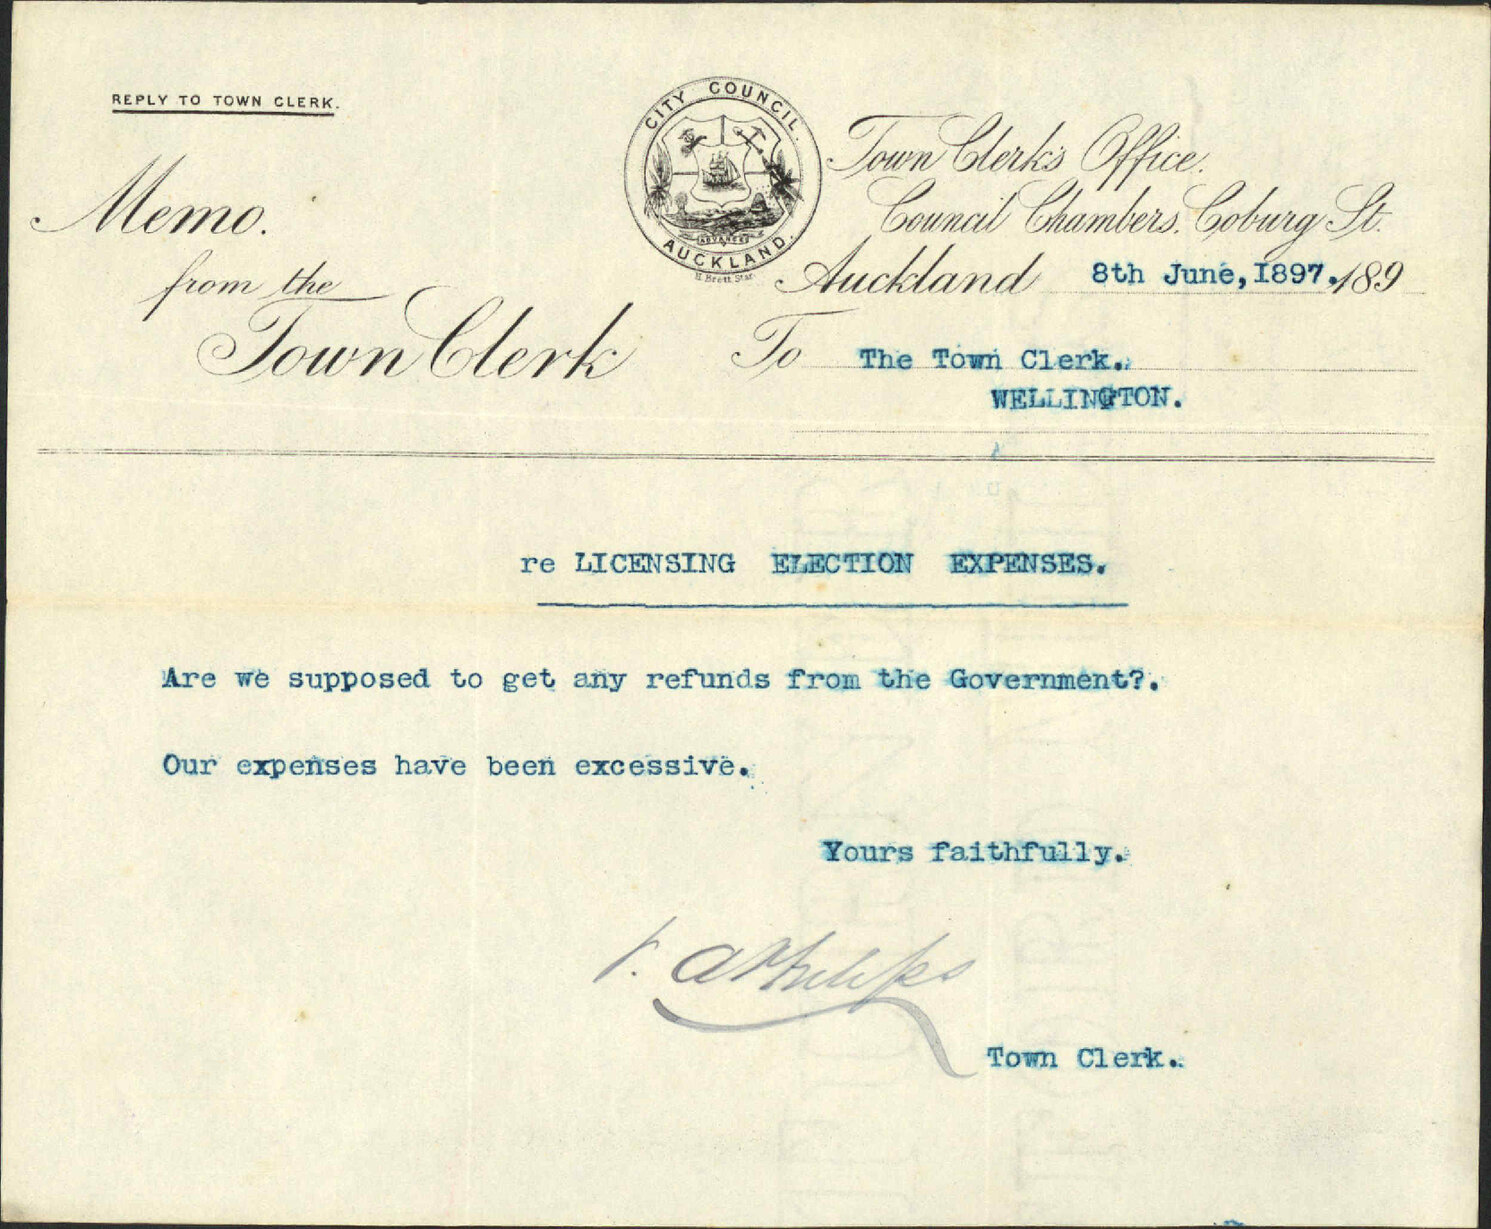 REPLY TO TOWN CLERK.
Memo.
from the
Town Clerk
CITY COUNCIL.
ADVANCE
AUCKLAND.
H Brett Star
Town Clerk's Office.
Council Chambers. Coburg St.
Auckland 8th June,1897.189
To The Town Clerk.
WELLINGTON.
re LICENSING ELECTION EXPENSES.
Are we supposed to get any refunds from the Government?.
Our expenses have been excessive.
Yours faithfully.
Philips
Town Clerk.